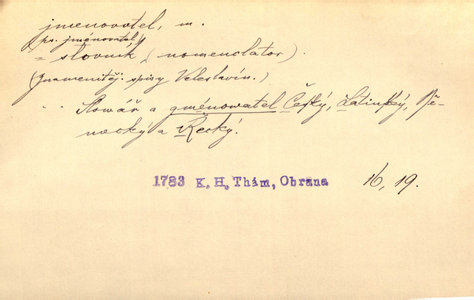 jmenovatel, m.
(ps. jménovatel)
= slovník (nomenclator).
(Znamenitěji spisy Veleslavín.)
Slowář a gménowatel Český, Latinský, Ně-
mecký a Řecký.
1783 K. H. Thám, Obrana 16, 19.